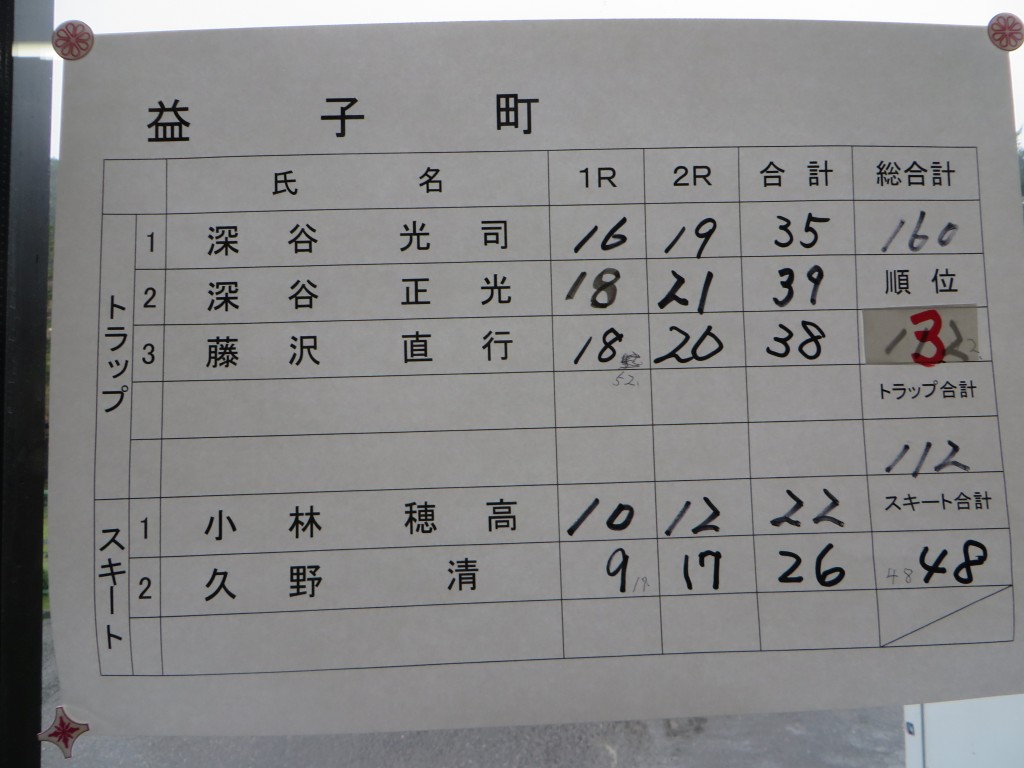 益子町
氏名 1R 2R 合計 総合計
トラップ
1 深谷 光司 16 19 35 160
2 深谷 正光 18 21 39 順位
3 藤沢 直行 18 20 38 3
52. トラップ合計
112
スキート
1 小林 穂高 10 12 22 スキート合計
2 久野 清 9 19. 17 26 48 48